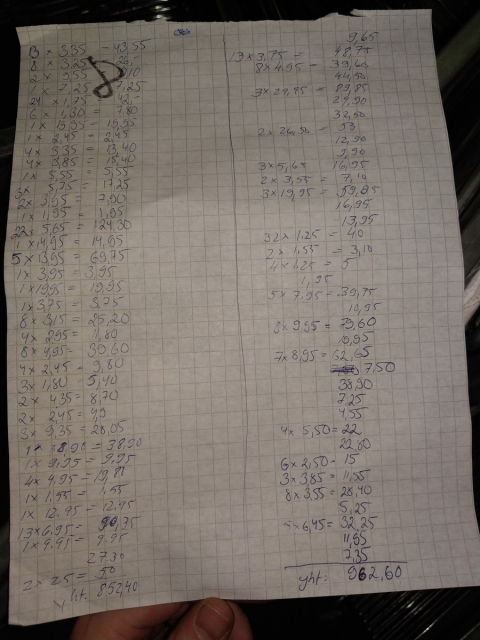 13 x 3,35 - 43,55
8 x 3,25 - 26,-
2 x 3,55
1 x 7,25 - 7,25
24 x 1,75 = 42,-
6 x 1,30 = 7,80
1 x 15,95 - 15,95
1 x 2,45 = 2,45
4 x 3,35 = 13,40
4 x 3,85 = 15,40
1 x 5,55 = 5,55
3x 5,75 = 17,25
2 x 3,95 = 7,90
1 x 1,95 = 1,95
1 x 14,95 = 14,95
5 x 13,95 = 69,75
1 x 3,95 = 3,95
1 x 19,95 = 19,95
1 x 3,75 = 3,75
8 x 3,15 = 25,20
4 x 2,95 = 11,80
8 x 4,95 - 39,60
4 x 2,45 = 9,80
3 x 1,80 - 5,40
2 x 4,35 = 8,70
2 x 2,45 = 4,9
3 x 9,35 = 28,05
1 x 38,90 = 38,90
1 x 9,95 = 9,95
4 x 4,95 - 19,80
1 x 1,55 = 1,55
1 x 12,95 = 12,95
13 x 6,95 = 90,35
1 x 9,95 = 9,95
27,30
2 x 25 = 50
yht. 852,40
9,65
13 x 3,75 = 48,75
8 x 4,95 = 39,60
44,50
3 x 29,95 = 89,85
29,90
32,50
2 x 26,50 = 53
12,90
9,90
3 x 5,65 = 16,95
2 x 3,55 = 7,10
3 x 19,95 = 59,85
16,95
13,95
32 x 1,25 = 40
2 x 1,55 = 3,10
4 x 1,25 = 5
1,95
5 x 7,95 = 39,75
10,95
8 x 9,95 = 79,60
10,95
7 x 8,95 = 62,65
7,50
38,90
7,25
4,55
4 x 5,50 = 22
22,80
6 x 2,50 - 15
3 x 3,85 = 11,55
8 x 3,55 = 28,40
5,25
5 x 6,45 = 32,25
11,95
7,35
yht: 962,60